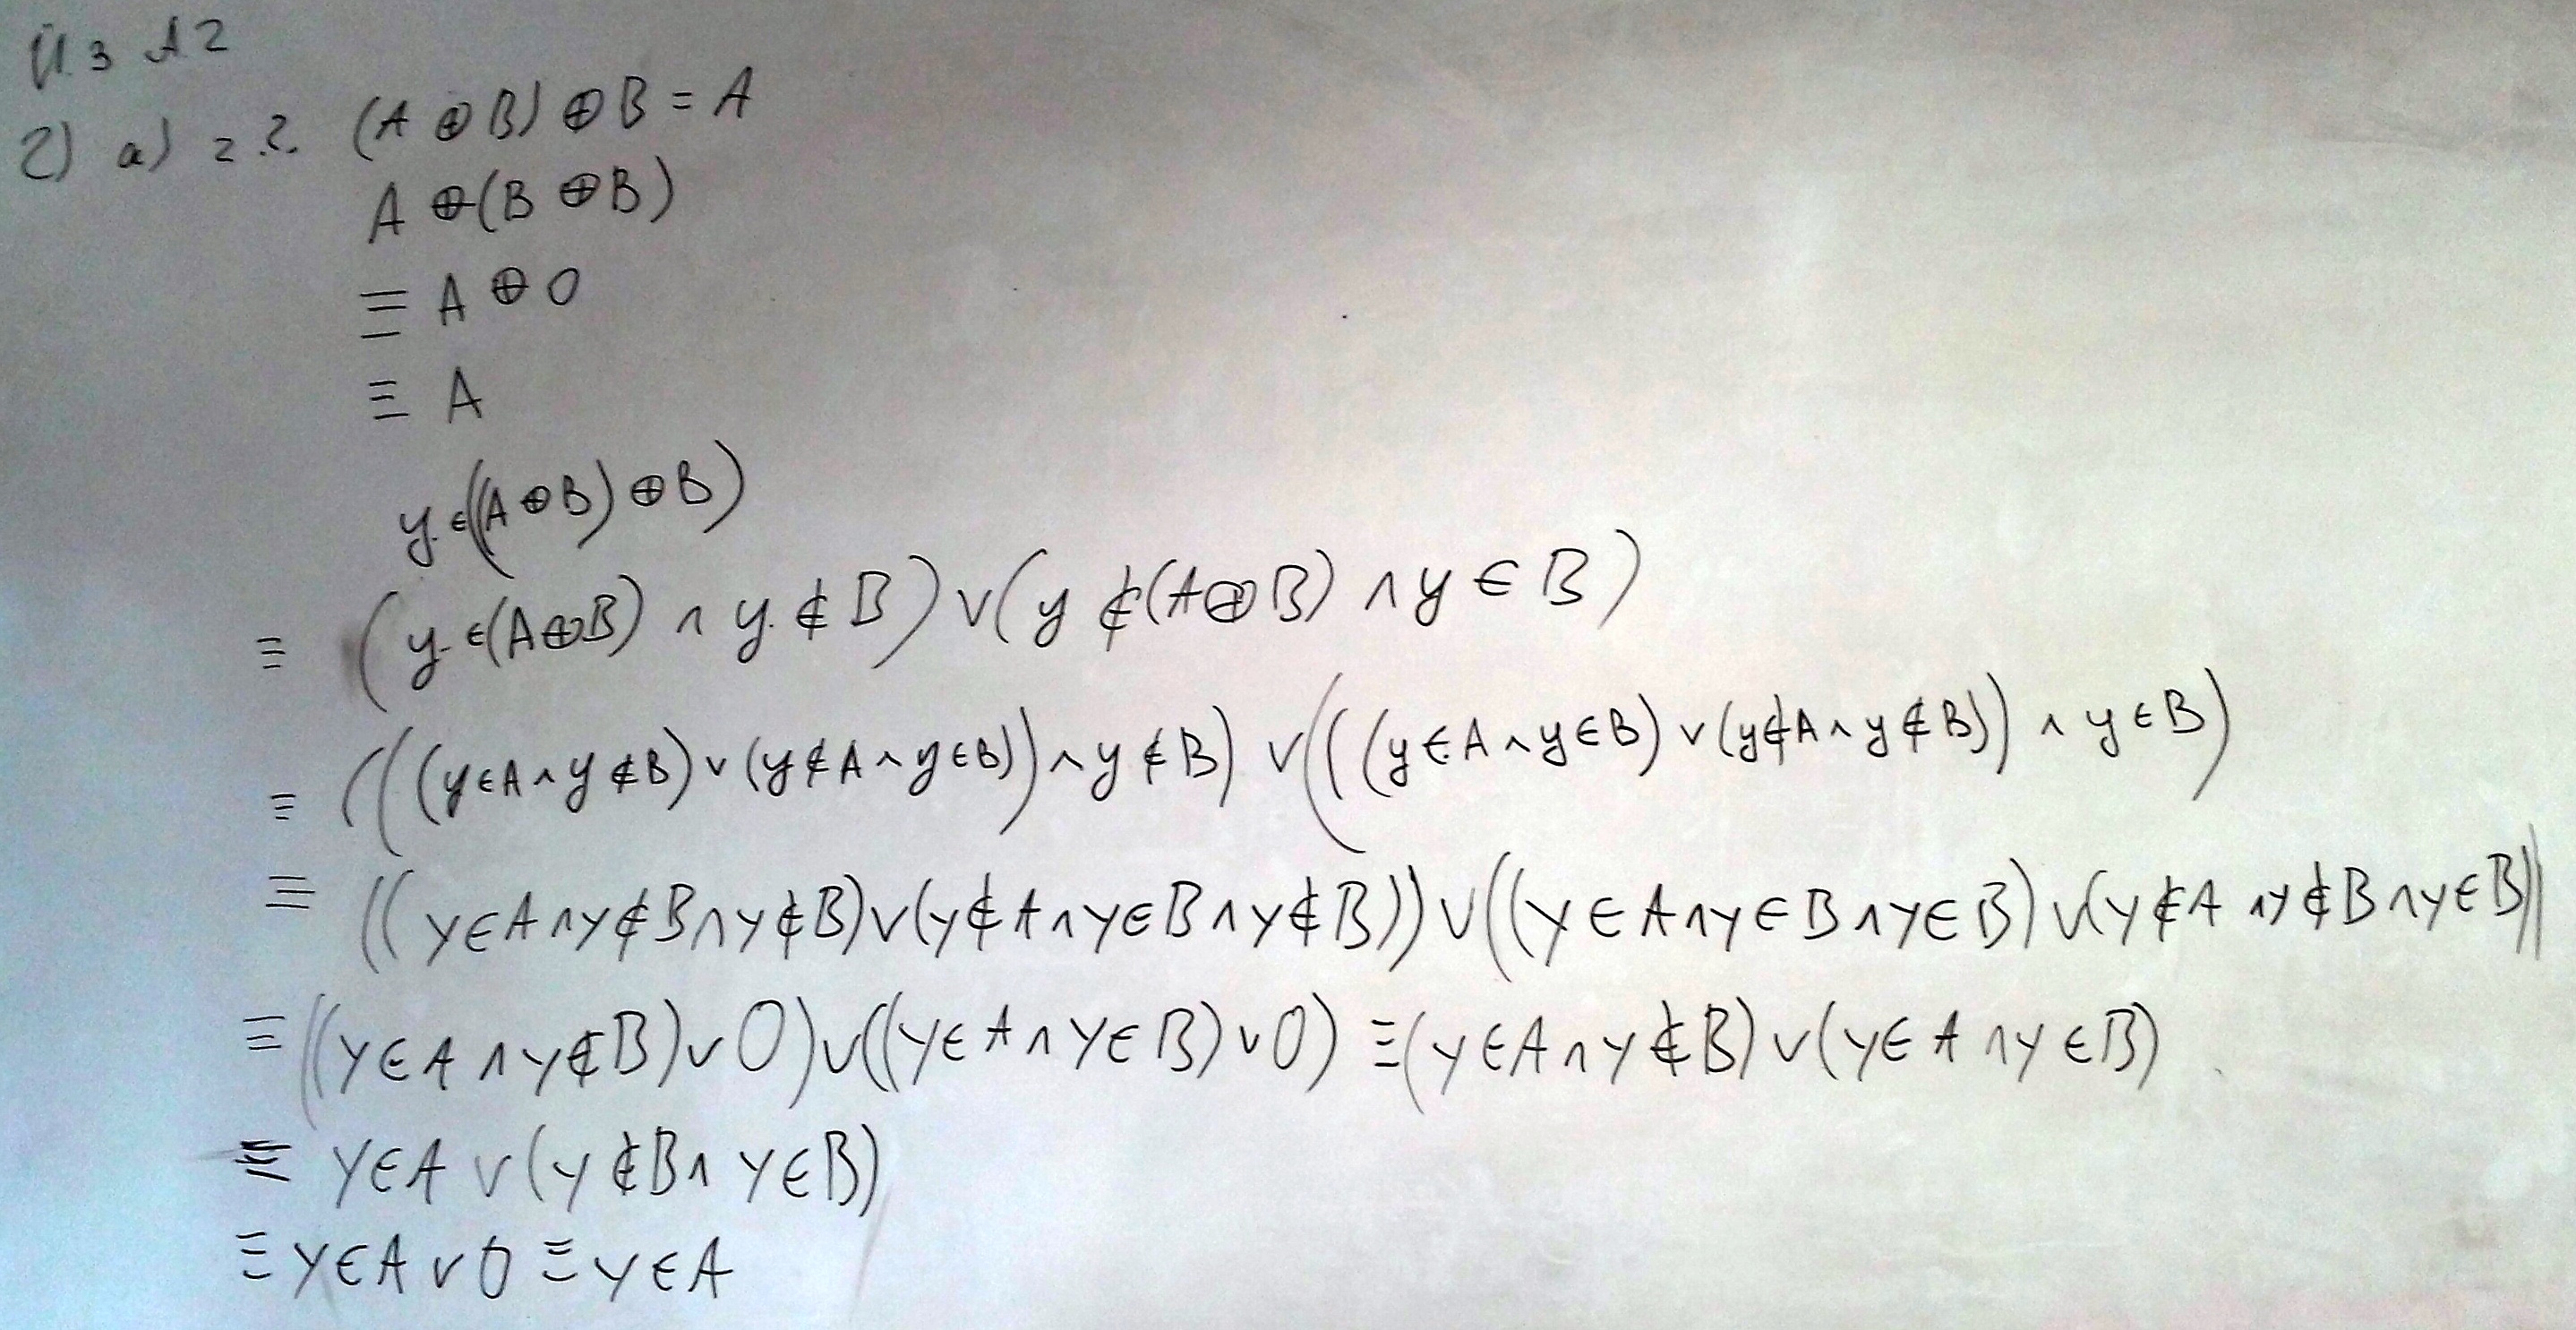 Ü3 A2
2) a) z.z. (A ⊕ B) ⊕ B = A
A ⊕ (B ⊕ B)
≡ A ⊕ 0
≡ A
y ∈ ((A ⊕ B) ⊕ B)
≡ (y ∈ (A ⊕ B) ∧ y ∉ B) ∨ (y ∉ (A ⊕ B) ∧ y ∈ B)
≡ (((y ∈ A ∧ y ∉ B) ∨ (y ∉ A ∧ y ∈ B)) ∧ y ∉ B) ∨ (((y ∈ A ∧ y ∈ B) ∨ (y ∉ A ∧ y ∉ B)) ∧ y ∈ B)
≡ ((y ∈ A ∧ y ∉ B ∧ y ∉ B) ∨ (y ∉ A ∧ y ∈ B ∧ y ∉ B)) ∨ ((y ∈ A ∧ y ∈ B ∧ y ∈ B) ∨ (y ∉ A ∧ y ∉ B ∧ y ∈ B))
≡ ((y ∈ A ∧ y ∉ B) ∨ 0) ∨ ((y ∈ A ∧ y ∈ B) ∨ 0) ≡ (y ∈ A ∧ y ∉ B) ∨ (y ∈ A ∧ y ∈ B)
≡ y ∈ A ∨ (y ∉ B ∧ y ∈ B)
≡ y ∈ A ∨ 0 ≡ y ∈ A